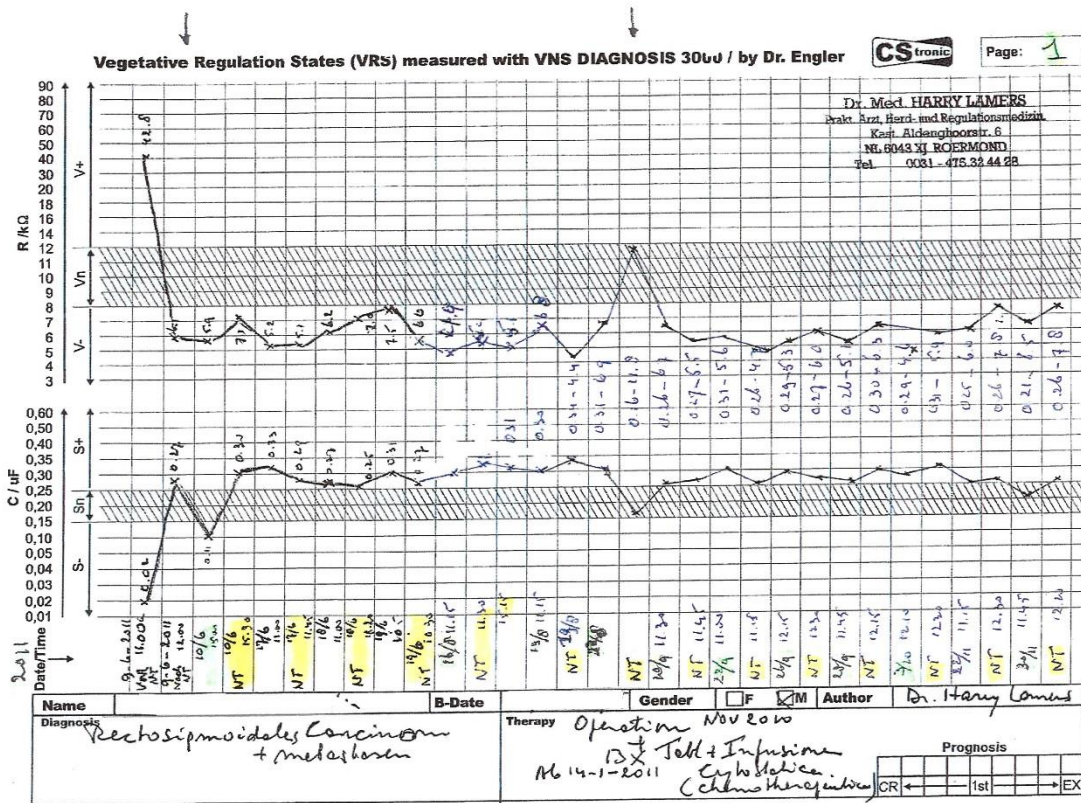 Vegetative Regulation States (VRS) measured with VNS DIAGNOSIS 3000 / by Dr. Engler
CStronic
Page: 1
Dr. Med. HARRY LAMERS
Prakt. Arzt, Herd- und Regulationsmedizin
Kast. Aldenghoorstr. 6
NL 6043 XJ ROERMOND
Tel. 0031 - 475.32 44 28
R /kΩ
V+
Vn
V-
90
80
70
60
50
40
30
20
18
16
14
12
11
10
9
8
7
6
5
4
3
42.8
5.9
7.1
5.2
5.1
6.2
7.0
7.5
0.34-4.4
0.31-6.9
0.16-11.9
0.26-6.7
0.27-5.5
0.31-5.6
0.29-5.3
0.27-6.0
0.30-6.3
0.29-4.6
0.31-5.9
0.25-6.0
0.26-7.8
0.21-6.5
0.26-7.8
C / uF
S+
Sn
S-
0,60
0,50
0,40
0,35
0,30
0,25
0,20
0,15
0,10
0,05
0,04
0,03
0,02
0,01
0.02
0.27
0.11
0.30
0.33
0.29
0.27
0.25
0.31
0.27
0.31
0.30
2011
Date/Time
9-6-2011
NT
9-6-2011 12.00
NT
10/6 15.00
10/6 15.30
NT
17/6 11.00
17/6 11.45
NT
18/6 11.00
18/6
NT
19/6
19/6 10.30
NT
16/8 11.15
NT 11.30
15.15
11.15
NT
NT
20/9 11.30
NT 11.45
22/9 11.00
NT 11.15
26/9 12.15
NT 12.30
28/9 11.45
NT 12.15
7/10 12.10
NT 12.30
22/11 11.15
NT 12.30
30/11 11.45
NT 12.20
Name
B-Date
Gender F M
Author Dr. Harry Lamers
Diagnosis
Rectosigmoidales Carcinom
+ metastasen
Therapy
Operation Nov 2010
+
13 x Tabl + Infusionen
Ab 14-1-2011 Cytostatica
(chemotherapeutica)
Prognosis
CR 1st EX